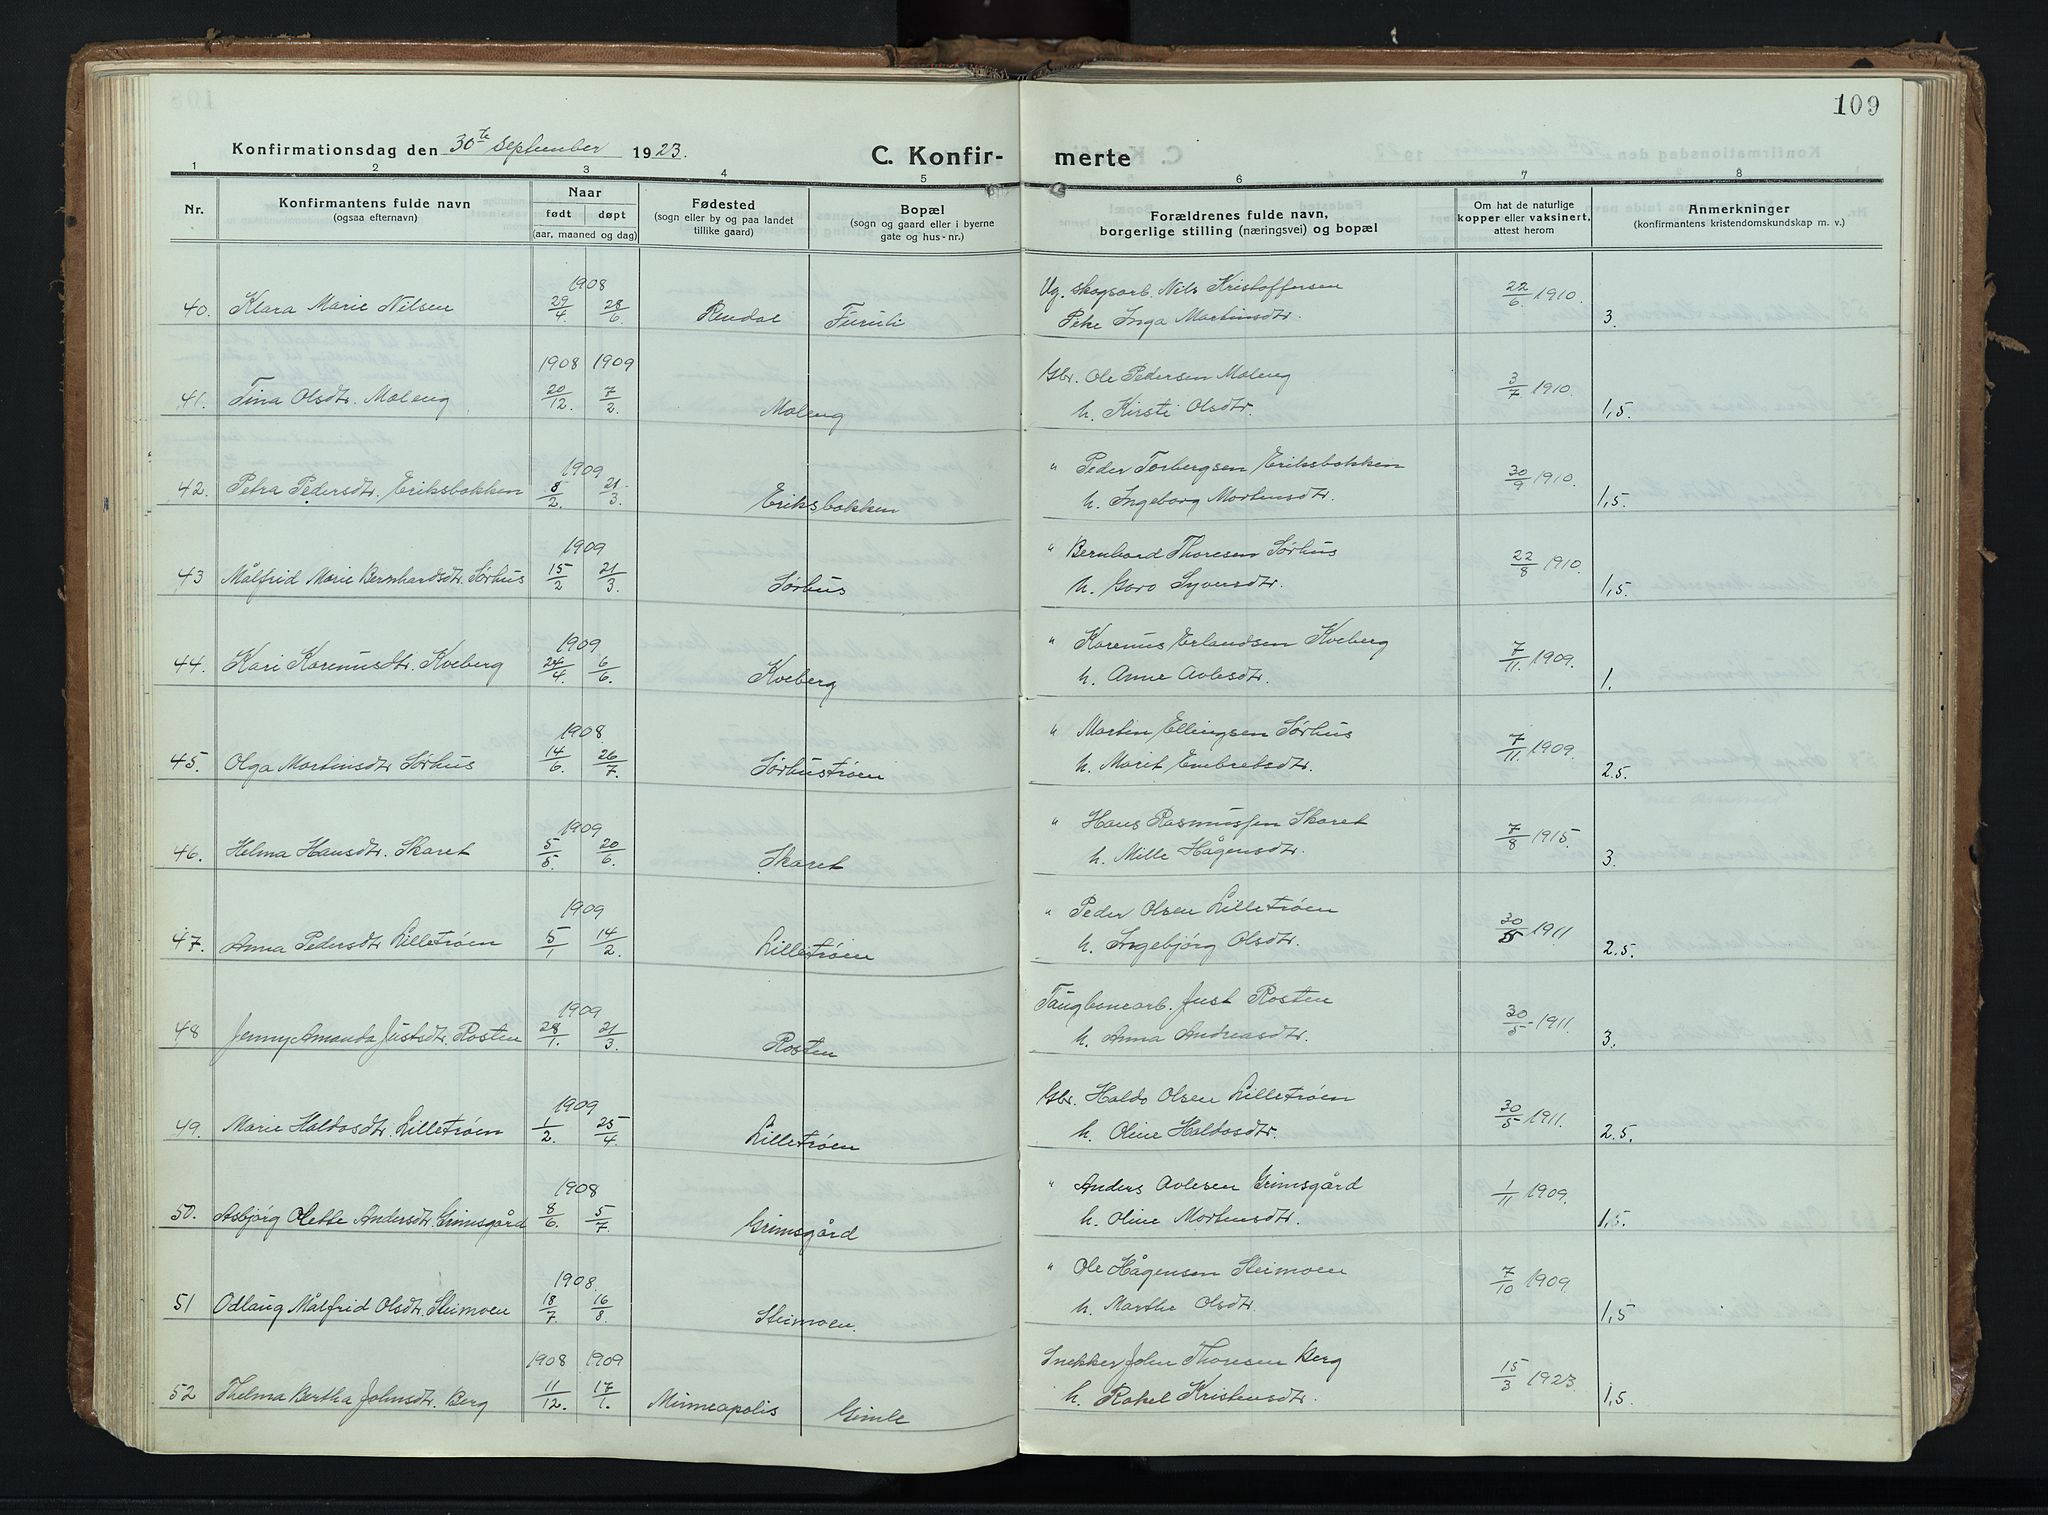 109
Konfirmationsdag den 30te September 1923.
C. Konfir- merte
1 2 3 4 5 6 7 8
Nr.
Konfirmantens fulde navn
(ogsaa efternavn)
Naar
født døpt
(aar, maaned og dag)
Fødested
(sogn eller by og paa landet
tillike gaard)
Bopæl
(sogn og gaard eller i byerne
gate og hus-nr.)
Forældrenes fulde navn,
borgerlige stilling (næringsvei) og bopæl
Om hat de naturlige
kopper eller vaksinert,
attest herom
Anmerkninger
(konfirmantens kristendomskundskap m. v.)
1908
40. Klara Marie Nilsen 29/4. 28/6. Rendal Furuli Ug. skogsarb. Nils Kristoffersen 22/6. 1910. 3.
Pike Inga Martinsdtr.
1908 1909
41. Tina Olsdtr. Moleng 20/12. 7/2. Moleng Gbr. Ole Pedersen Moleng 3/7 1910. 1,5.
h. Kirsti Olsdtr.
1909
42. Petra Pedersdtr. Eriksbakken 8/2. 21/3. Eriksbakken " Peder Torbergsen Eriksbakken 30/9 1910. 1,5.
h. Ingeborg Mortensdtr.
1909
43 Målfrid Marie Bernhardsdtr. Sørhus 15/2 21/3. Sørhus " Bernhard Thoresen Sørhus 22/8 1910. 1,5.
h. Goro Syversdtr.
1909
44. Kari Karenusdtr. Kveberg 24/4. 6/6. Kveberg " Karenus Erlandsen Kveberg 7/11. 1909. 1.
h. Anne Avlesdtr.
1908.
45. Olga Martinsdtr Sørhus 14/6. 26/7. Sørhustrøen " Martin Ellingsen Sørhus 7/11. 1909. 2.5.
h. Marit Embretsdtr.
1909
46. Helma Hansdtr. Skaret 5/5. 20/6. Skaret " Hans Rasmussen Skaret 7/8 1915. 3.
h. Mille Hågensdtr.
1909
47. Anna Pedersdtr Lilletrøen 5/1 14/2. Lilletrøen " Peder Olsen Lilletrøen 30/5 1911 2.5.
h. Ingebjørg Olsdtr.
1909
48 Jenny Amanda Justsdtr. Rosten 28/1. 21/3 Rosten Taugbanearb. Just Rosten 30/5 1911. 3.
h. Anna Andreasdtr.
1909
49. Marie Haldosdtr. Lilletrøen 1/2. 25/4. Lilletrøen Gbr. Haldo Olsen Lilletrøen 30/5 1911. 2.5.
h. Oline Haldosdtr.
1908
50. Asbjørg Olette Andersdtr. Grimsgård 8/6. 5/7. Grimsgård " Anders Avlesen Grimsgård 1/11 1909. 1,5.
h. Oline Mortensdtr.
1908.
51 Odlaug Målfrid Olsdtr. Steimoen 18/7. 16/8. Steimoen. " Ole Hågensen Steimoen 7/10 1909. 1,5
h. Marthe Olsdtr.
1908 1909
52 Thelma Bertha Johnsdtr. Berg 11/12. 17/1. Minneapolis Gimle Snekker John Thoresen Berg 15/3 1923. 1,5.
h. Rakel Kristensdtr.